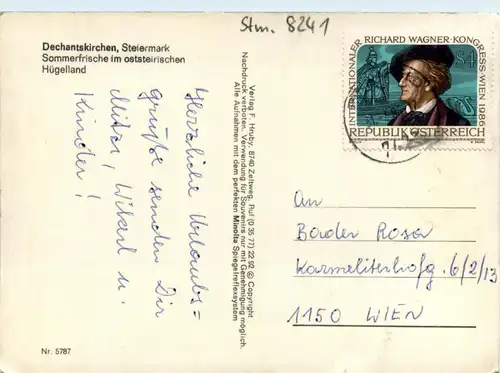 Stm. 8241
Dechantskirchen, Steiermark
Sommerfrische im oststeirischen
Hügelland
Herzliche Urlaubs=
grüße senden Dir
Mitzi, Wikerl u.
Kinder!
Nr. 5787
Verlag F. Hruby, 8740 Zeltweg, Ruf (0 35 77) 22 92 © Copyright
Nachdruck verboten. Verwendung für Souvenirs nur mit Genehmigung möglich
Alle Aufnahmen mit dem perfekten Minolta Spiegelreflexsystem
INTERNATIONALER RICHARD WAGNER-KONGRESS-WIEN 1986
S4
REPUBLIK ÖSTERREICH
An
Bader Rosa
Karmeliterhofg. 6/2/13
1150 WIEN